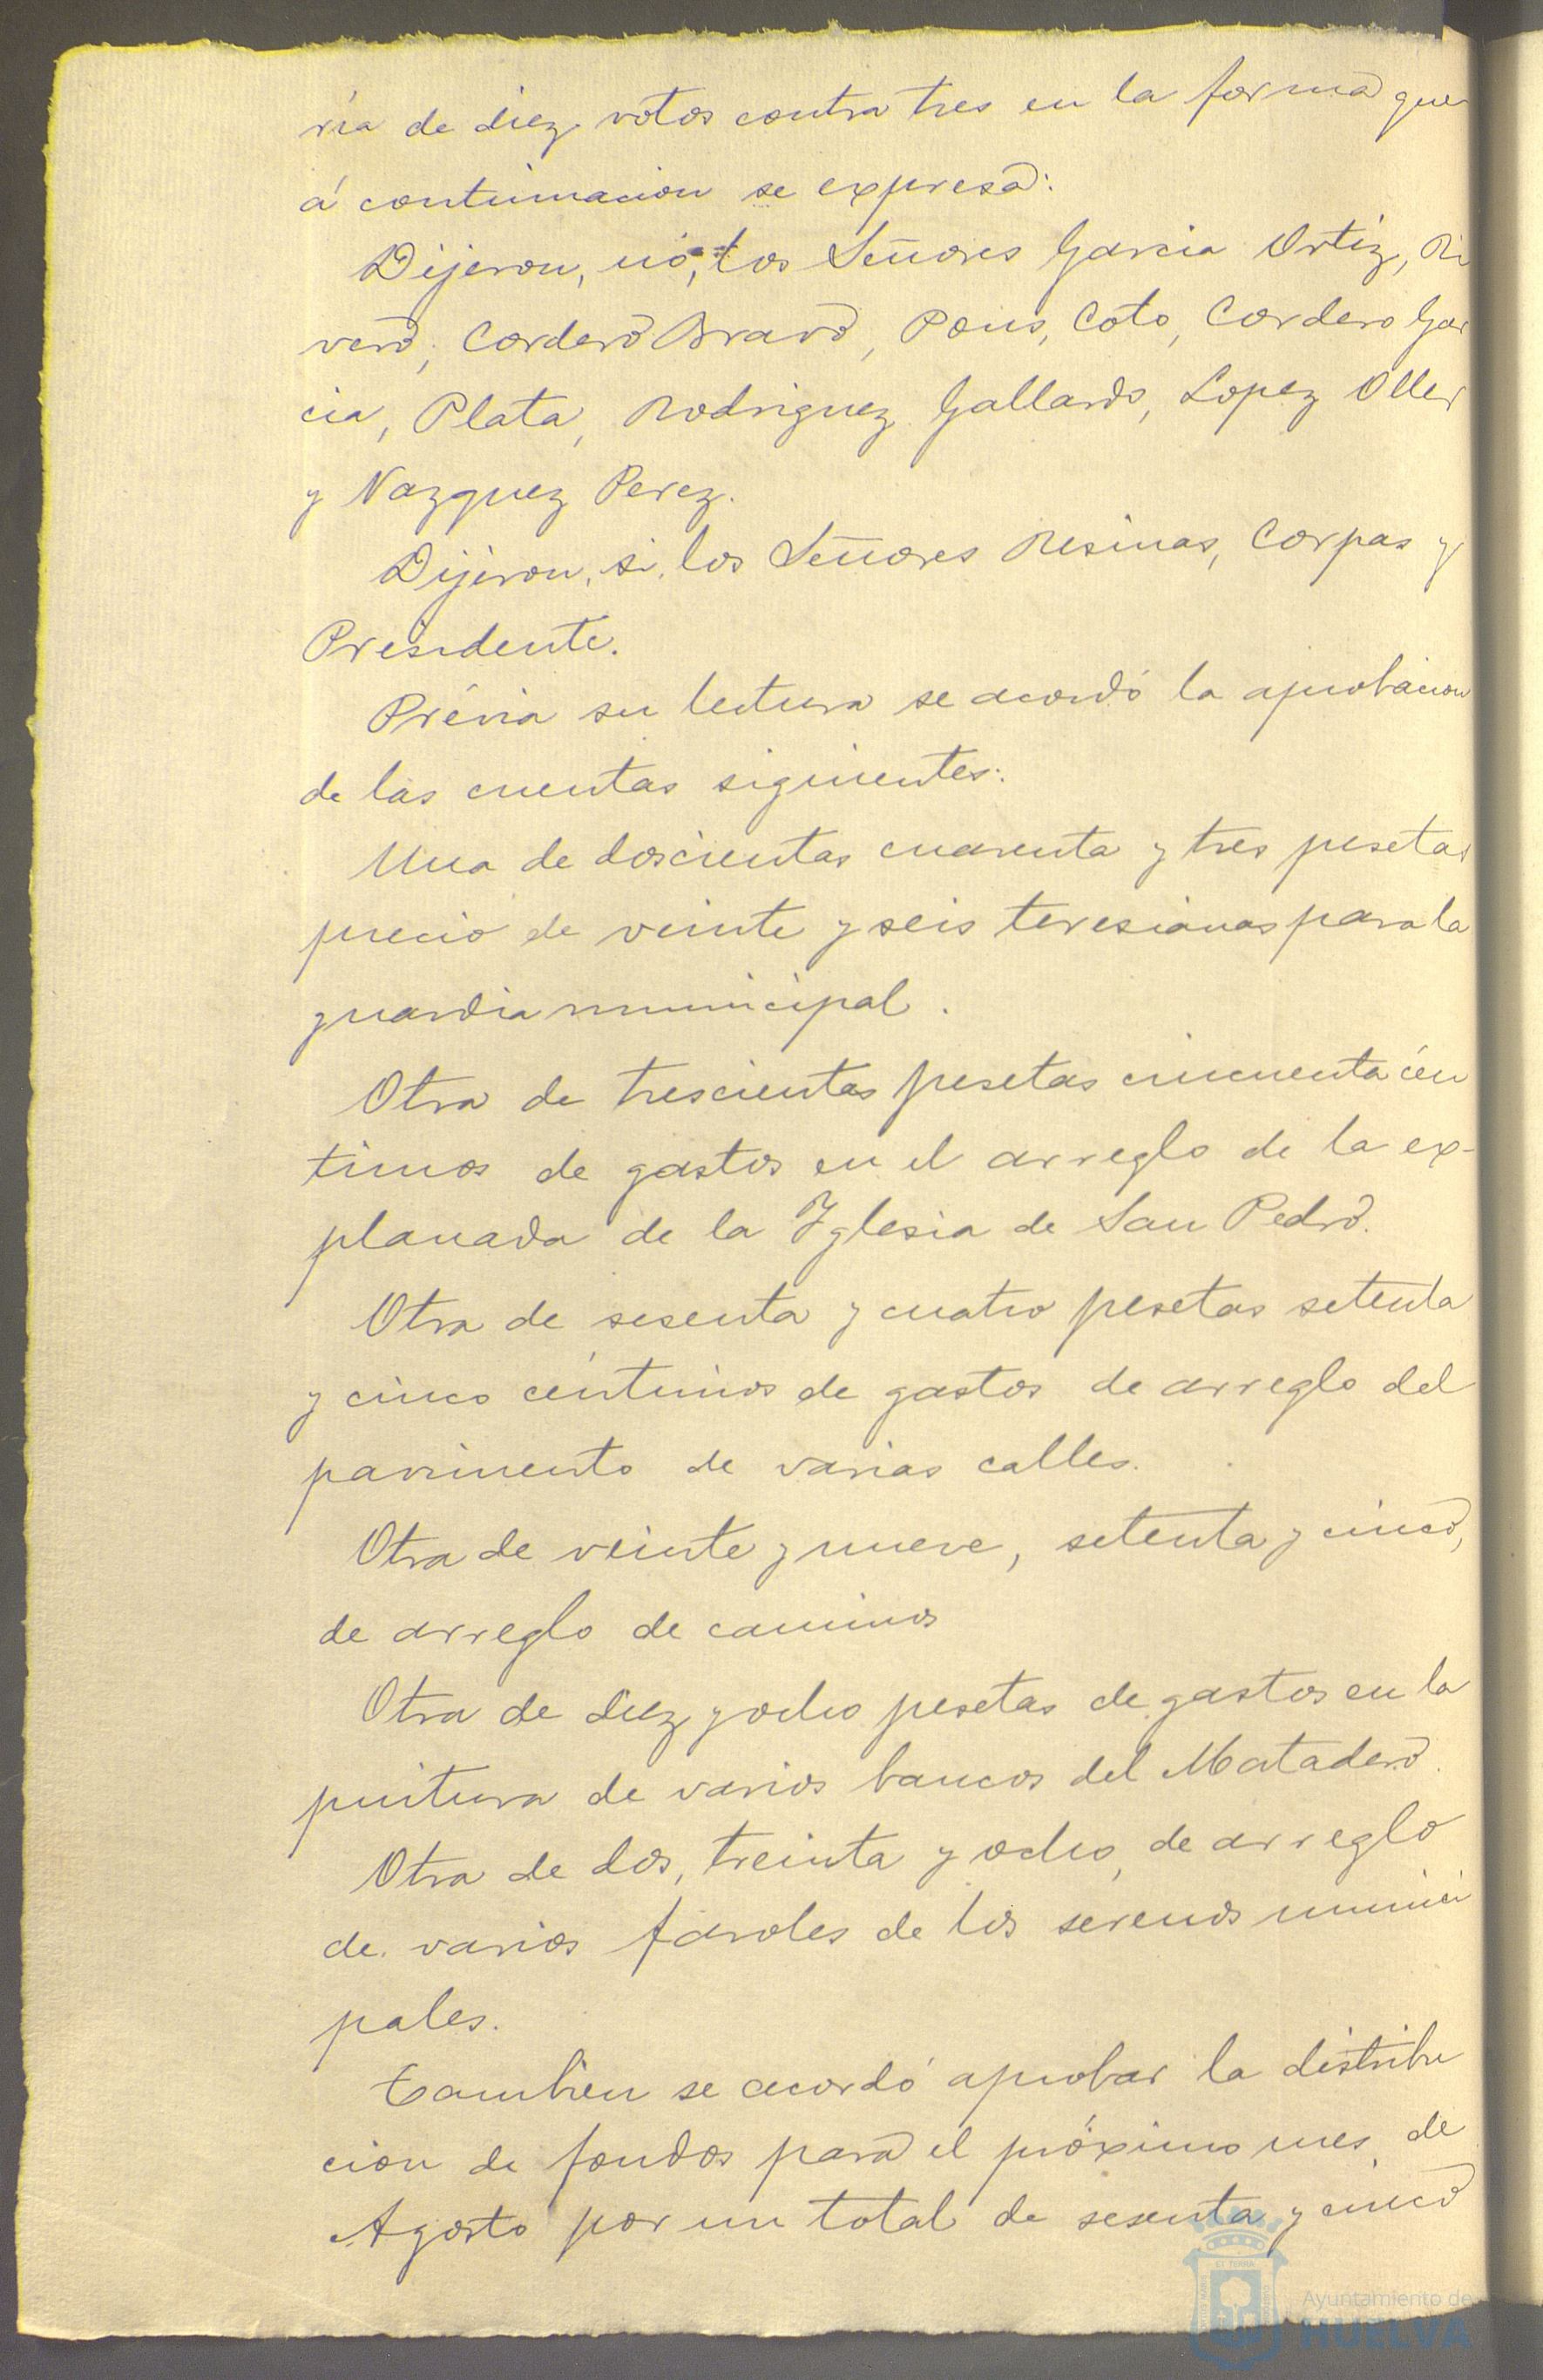 ria de diez votos contra tres en la forma que
á continuacion se expresa:
Dijeron, nó, los Señores Garcia Ortiz, Ri
vero, Cordero Bravo, Pons, Coto, Cordero Gar
cia, Plata, Rodriguez Gallardo, Lopez Oller
y Vazquez Perez.
Dijeron, si, los Señores Resinas, Corpas y
Presidente.
Prévia su lectura se acordó la aprobacion
de las cuentas siguientes:
Una de doscientas cuarenta y tres pesetas
precio de veinte y seis teresianas para la
guardia municipal.
Otra de trescientas pesetas cincuenta cén
timos de gastos en el arreglo de la ex-
planada de la Iglesia de San Pedro.
Otra de sesenta y cuatro pesetas setenta
y cinco céntimos de gastos de arreglo del
pavimento de varias calles.
Otra de veinte y nueve, setenta y cinco,
de arreglo de caminos
Otra de diez y ocho pesetas de gastos en la
pintura de varios bancos del Matadero.
Otra de dos, treinta y ocho, de arreglo
de varios faroles de los serenos munici
pales.
Tambien se acordó aprobar la distribu
cion de fondos para el próximo mes de
Agosto por un total de sesenta y cinco
Ayuntamiento de
HUELVA